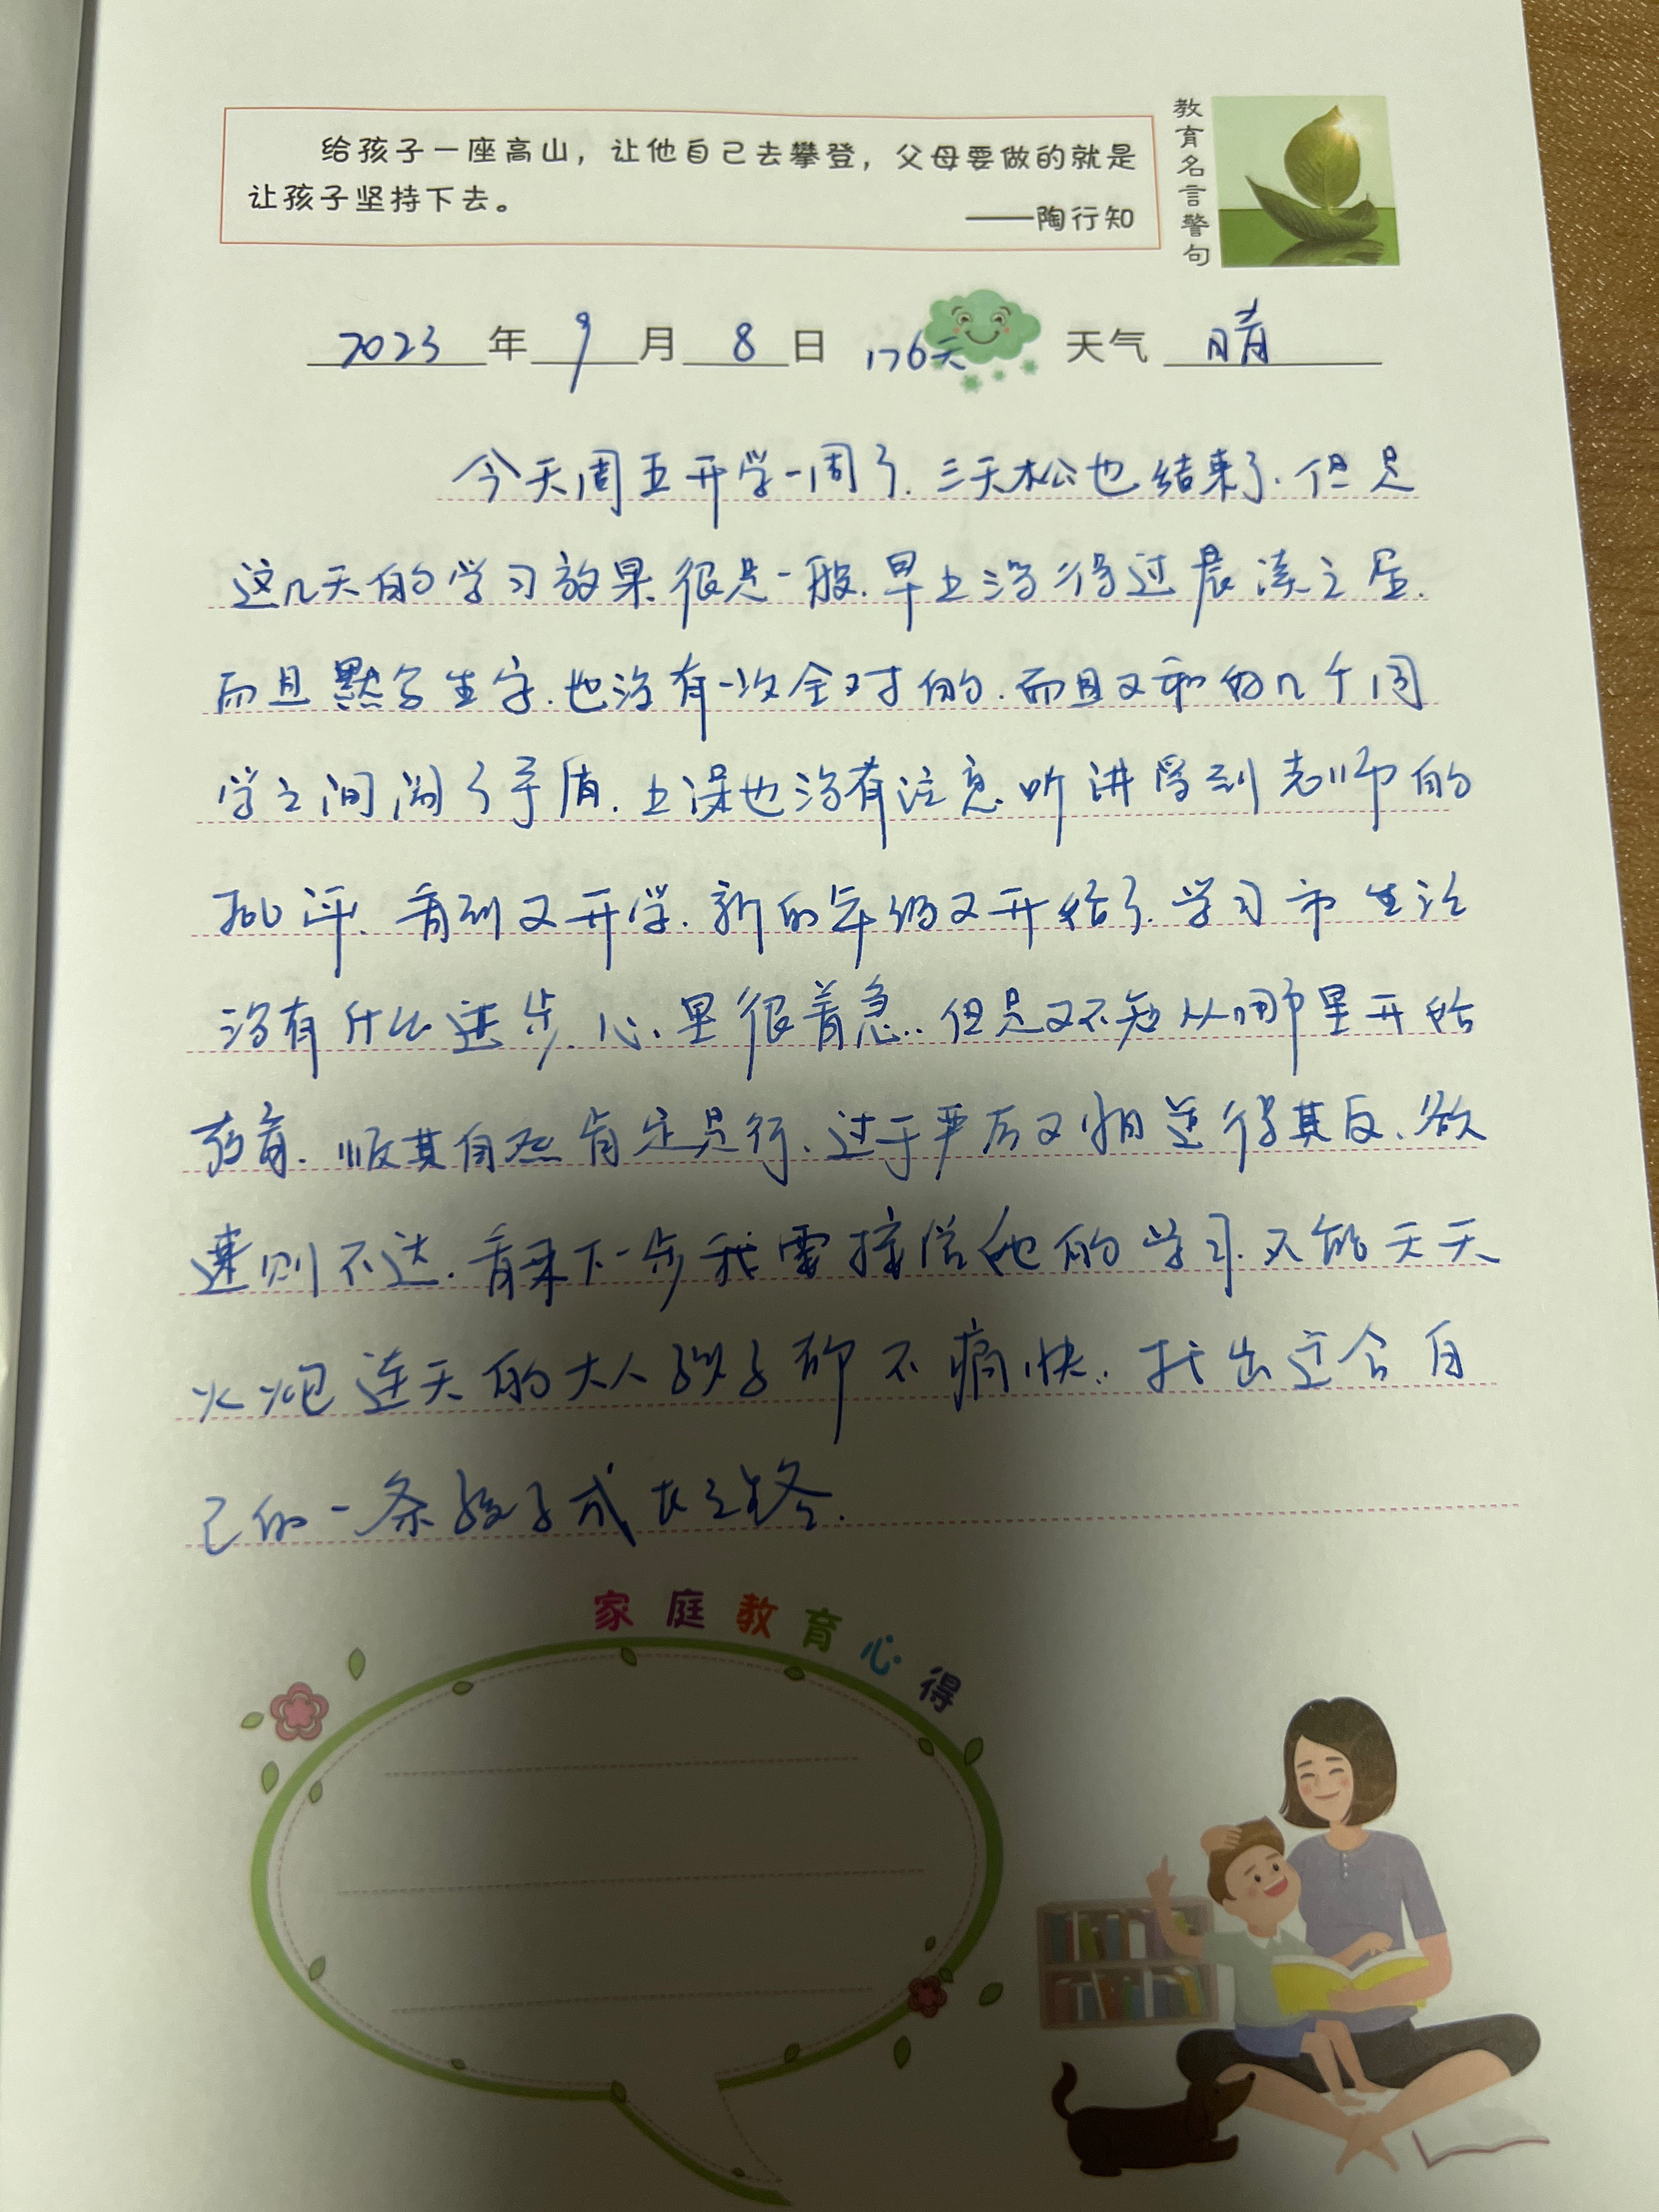 给孩子一座高山，让他自己去攀登，父母要做的就是
让孩子坚持下去。
——陶行知
教育名言警句
2023年9月8日 176天 天气 晴
今天周五开学一周了.三天松也结束了.但是
这几天的学习效果很是一般.早上没得过晨读之星.
而且默写生字.也没有一次全对的.而且又和的几个同
学之间闹了矛盾.上课也没有注意听讲受到老师的
批评.看到又开学.新的年级又开始了.学习和生活
没有什么进步.心里很着急..但是又不知从哪里开始
教育.顺其自然肯定是行.过于严厉又怕适得其反.欲
速则不达.看来下一步我需接管她的学习.不能天天
火炮连天的大人孩子都不痛快..找出适合自
己的一条孩子成长之路.
家庭教育心得